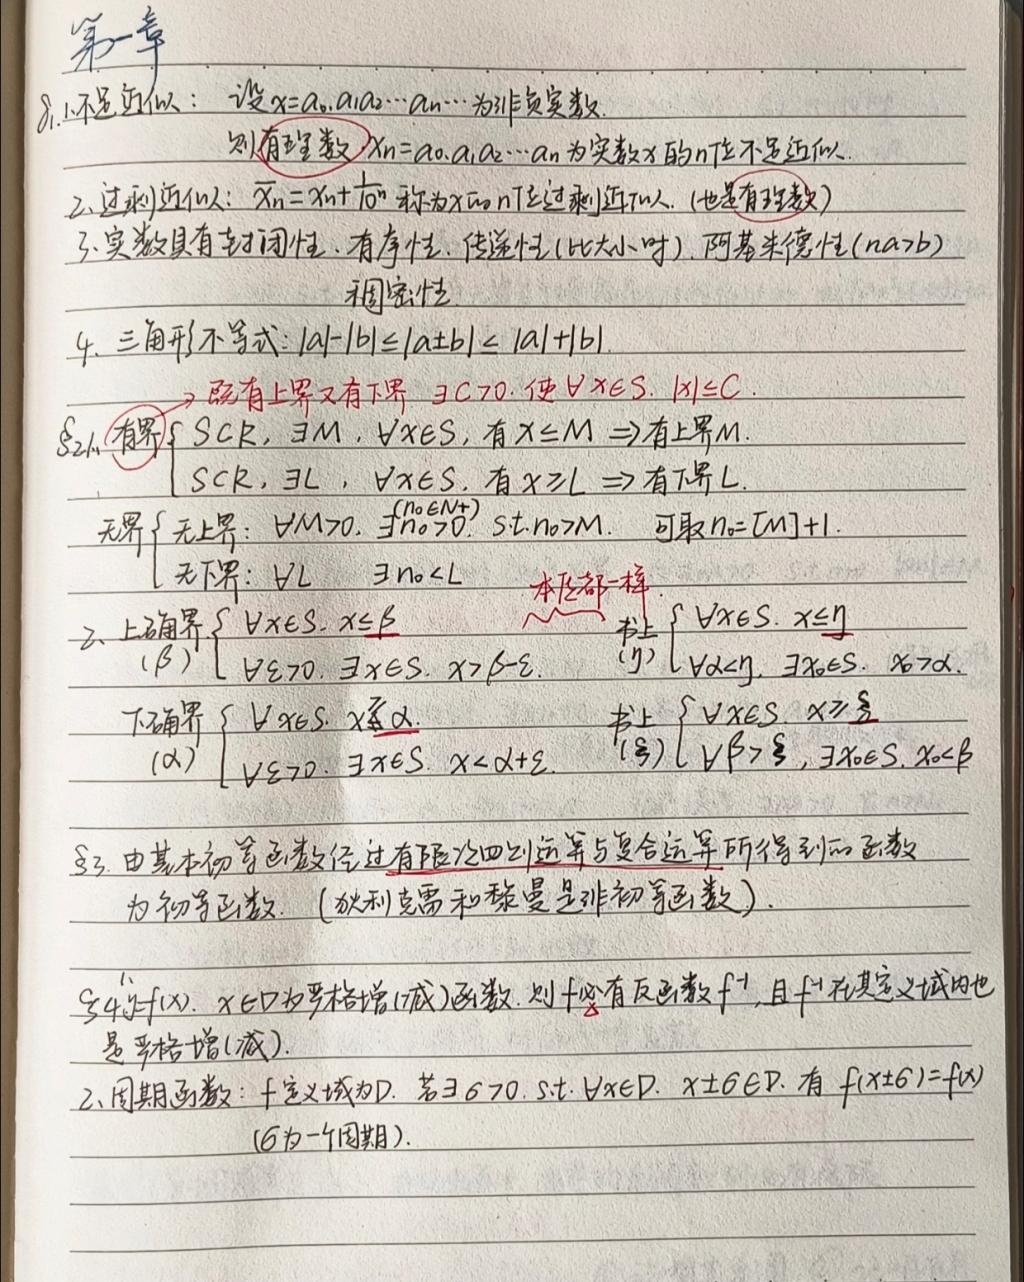 第一章
§1.1.不足近似： 设x=a₀.a₁a₂⋯aₙ⋯为非负实数.
则有理数xₙ=a₀.a₁a₂⋯aₙ为实数x的n位不足近似.
2.过剩近似： x̄ₙ=xₙ+1/10ⁿ 称为x的n位过剩近似. (也是有理数)
3.实数具有封闭性.有序性.传递性(比大小时).阿基米德性(na>b)
稠密性.
4. 三角形不等式：|a|-|b|≤|a±b|≤|a|+|b|.
→既有上界又有下界 ∃C>0.使∀x∈S. |x|≤C.
§2.1. 有界{ S⊂R, ∃M, ∀x∈S, 有x≤M ⇒有上界M.
S⊂R, ∃L, ∀x∈S. 有x≥L ⇒有下界L.
(n₀∈N+)
无界{ 无上界： ∀M>0. ∃n₀>0. s.t. n₀>M. 可取n₀=[M]+1.
无下界： ∀L ∃n₀<L
本质都一样.
2. 上确界(β){ ∀x∈S. x≤β 书上(η){ ∀x∈S. x≤η
∀ε>0. ∃x∈S. x>β-ε. ∀α<η, ∃x₀∈S. x₀>α.
下确界(α){ ∀x∈S. x≥α. 书上(ξ){ ∀x∈S. x≥ξ
∀ε>0. ∃x∈S. x<α+ε. ∀β>ξ, ∃x₀∈S. x₀<β
§3. 由基本初等函数经过有限次四则运算与复合运算所得到的函数
为初等函数. (狄利克雷和黎曼是非初等函数).
§4.1. y=f(x). x∈D为严格增(减)函数.则f必有反函数f⁻¹,且f⁻¹在其定义域内也
是严格增(减).
2.周期函数：f定义域为D. 若∃6>0. s.t. ∀x∈D. x±6∈D. 有 f(x±6)=f(x)
(6为一个周期).